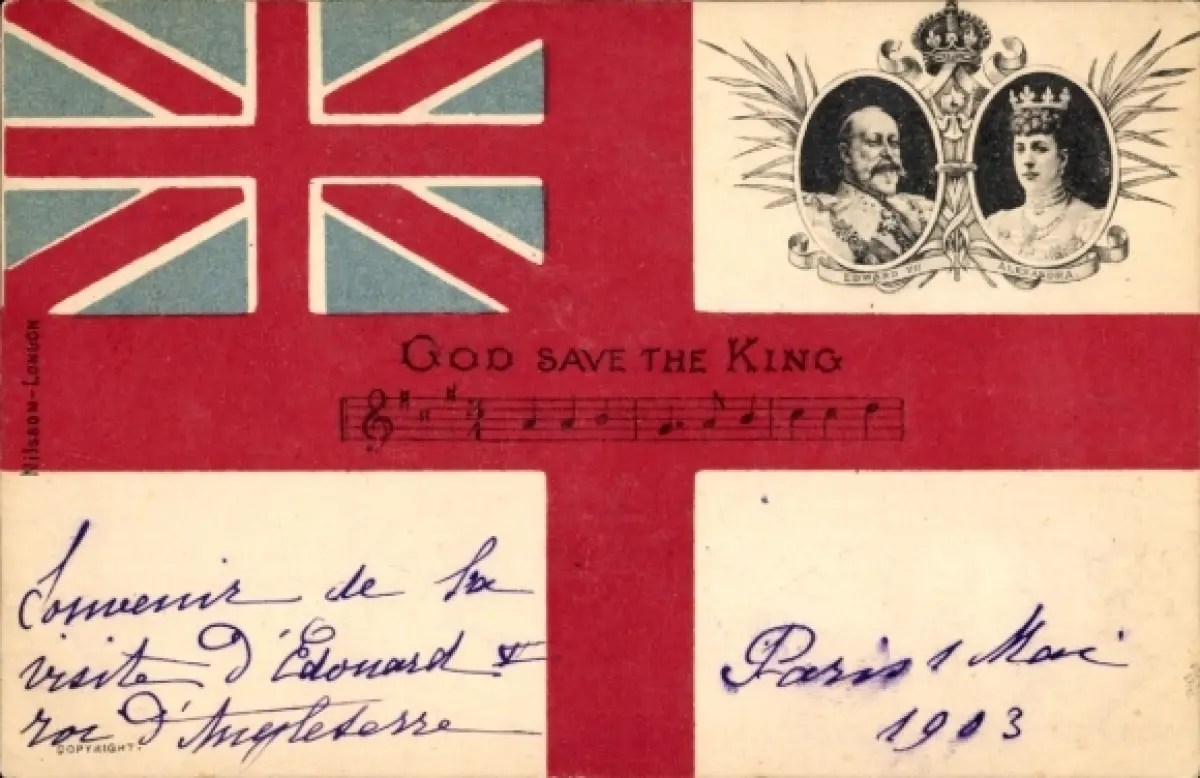 EDWARD VII
ALEXANDRA
GOD SAVE THE KING
NILSSON-LONDON
Souvenir de la
visite d'Édouard
roi d'Angleterre
COPYRIGHT.
Paris 1 Mai
1903